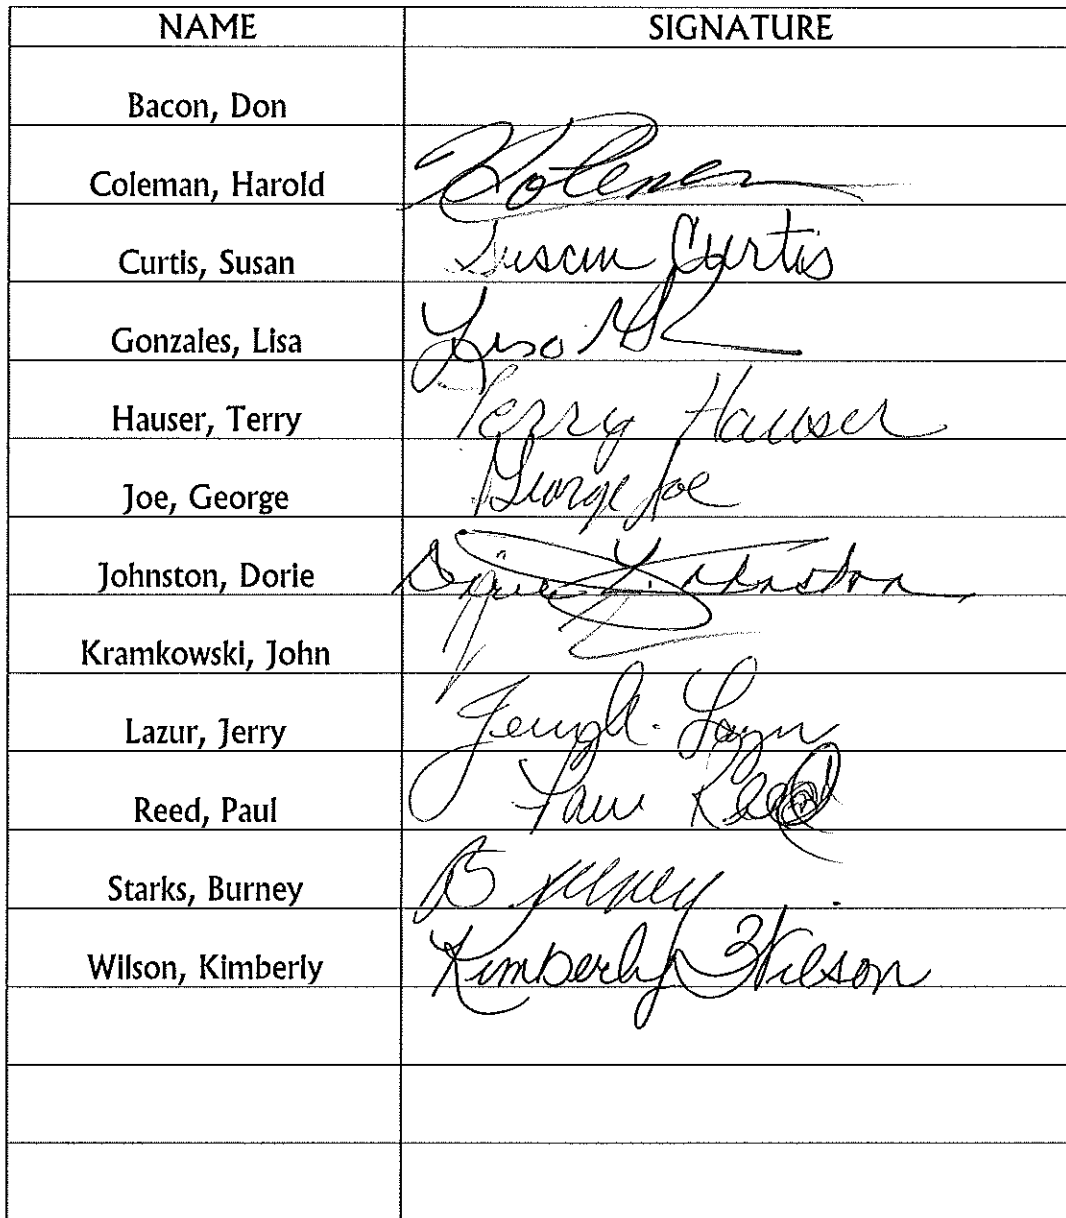 NAME SIGNATURE
Bacon, Don
Coleman, Harold
Curtis, Susan Susan Curtis
Gonzales, Lisa Lisa
Hauser, Terry Terry Hauser
Joe, George George Joe
Johnston, Dorie Dorie Johnston
Kramkowski, John
Lazur, Jerry
Reed, Paul Paul Reed
Starks, Burney
Wilson, Kimberly Kimberly Wilson